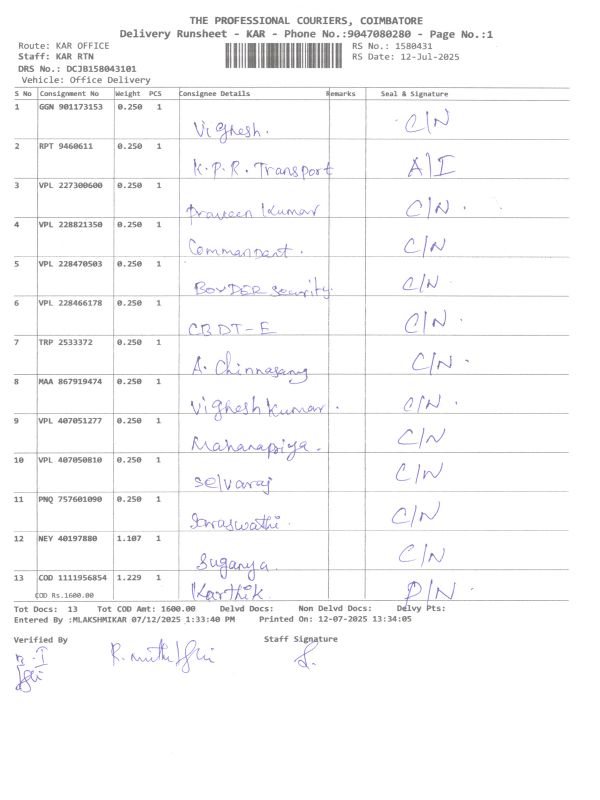 THE PROFESSIONAL COURIERS, COIMBATORE
Delivery Runsheet - KAR - Phone No.:9047080280 - Page No.:1
Route: KAR OFFICE RS No.: 1580431
Staff: KAR RTN RS Date: 12-Jul-2025
DRS No.: DCJB158043101
Vehicle: Office Delivery
S No Consignment No Weight PCS Consignee Details Remarks Seal & Signature
1 GGN 901173153 0.250 1
Vighesh. C/N
2 RPT 9460611 0.250 1
K.P.R. Transport A/I
3 VPL 227300600 0.250 1
Praveen Kumar C/N.
4 VPL 228821350 0.250 1
Commandant. C/N
5 VPL 228470503 0.250 1
BOVDER Security. C/N.
6 VPL 228466178 0.250 1
CBDT-E C/N.
7 TRP 2533372 0.250 1
A. Chinnasamy C/N.
8 MAA 867919474 0.250 1
Vighesh Kumar. C/N.
9 VPL 407051277 0.250 1
C/N
10 VPL 407050810 0.250 1
Selvaraj C/N
11 PNQ 757601090 0.250 1
Saraswathi. C/N
12 NEY 40197880 1.107 1
Suganya. C/N
13 COD 1111956854 1.229 1
COD Rs.1600.00 Karthik. D/N.
Tot Docs: 13 Tot COD Amt: 1600.00 Delvd Docs: Non Delvd Docs: Delvy Pts:
Entered By :MLAKSHMIKAR 07/12/2025 1:33:40 PM Printed On: 12-07-2025 13:34:05
Verified By Staff Signature